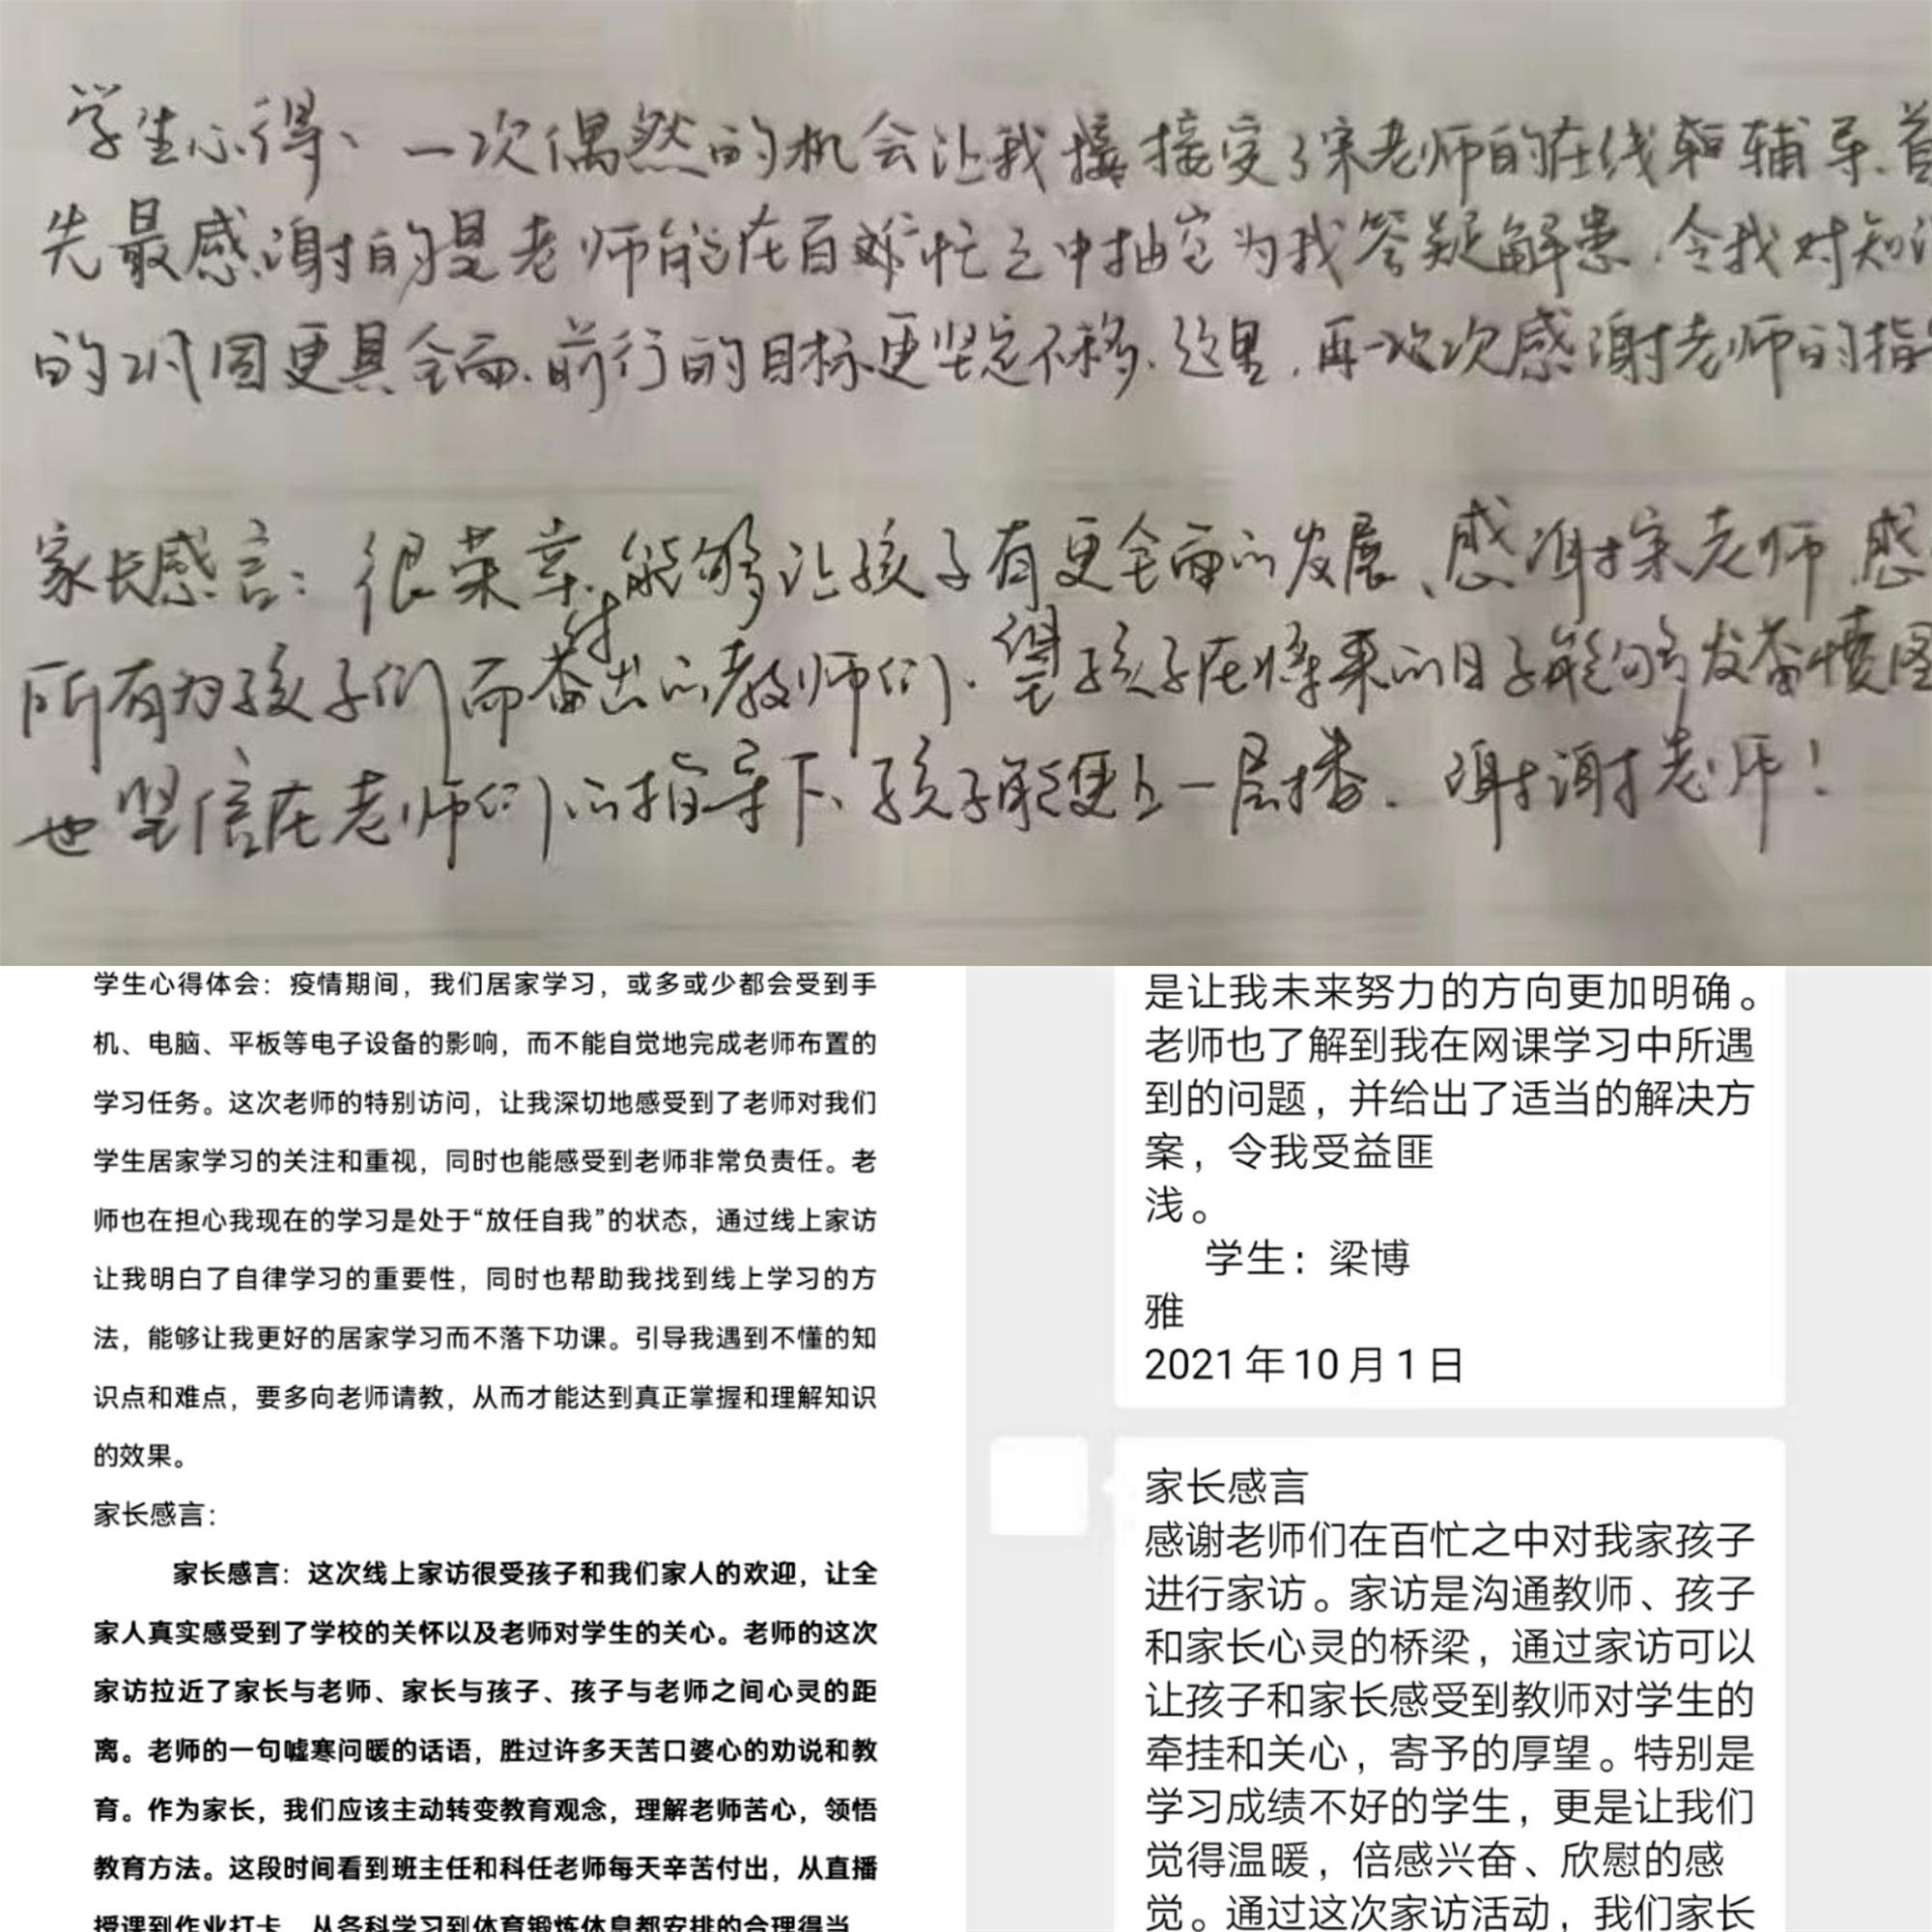 学生心得、一次偶然的机会让我接受了宋老师的在线辅导.首
先最感谢的是老师能在百忙之中抽空为我答疑解惑.令我对知识
的巩固更具全面.前行的目标更坚定不移.这里.再一次次感谢老师的指
家长感言：很荣幸.能够让孩子有更全面的发展、感谢宋老师.感
所有为孩子们而付出的教师们.望孩子在将来的日子能够发奋愤图
也坚信在老师们的指导下、孩子能更上一层楼.谢谢老师！
学生心得体会：疫情期间，我们居家学习，或多或少都会受到手
机、电脑、平板等电子设备的影响，而不能自觉地完成老师布置的
学习任务。这次老师的特别访问，让我深切地感受到了老师对我们
学生居家学习的关注和重视，同时也能感受到老师非常负责任。老
师也在担心我现在的学习是处于“放任自我”的状态，通过线上家访
让我明白了自律学习的重要性，同时也帮助我找到线上学习的方
法，能够让我更好的居家学习而不落下功课。引导我遇到不懂的知
识点和难点，要多向老师请教，从而才能达到真正掌握和理解知识
的效果。
家长感言：
家长感言：这次线上家访很受孩子和我们家人的欢迎，让全
家人真实感受到了学校的关怀以及老师对学生的关心。老师的这次
家访拉近了家长与老师、家长与孩子、孩子与老师之间心灵的距
离。老师的一句嘘寒问暖的话语，胜过许多天苦口婆心的劝说和教
育。作为家长，我们应该主动转变教育观念，理解老师苦心，领悟
教育方法。这段时间看到班主任和科任老师每天辛苦付出，从直播
授课到作业打卡，从各科学习到体育锻炼休息都安排的合理得当，
是让我未来努力的方向更加明确。
老师也了解到我在网课学习中所遇
到的问题，并给出了适当的解决方
案，令我受益匪
浅。
学生：梁博
雅
2021年10月1日
家长感言
感谢老师们在百忙之中对我家孩子
进行家访。家访是沟通教师、孩子
和家长心灵的桥梁，通过家访可以
让孩子和家长感受到教师对学生的
牵挂和关心，寄予的厚望。特别是
学习成绩不好的学生，更是让我们
觉得温暖，倍感兴奋、欣慰的感
觉。通过这次家访活动，我们家长